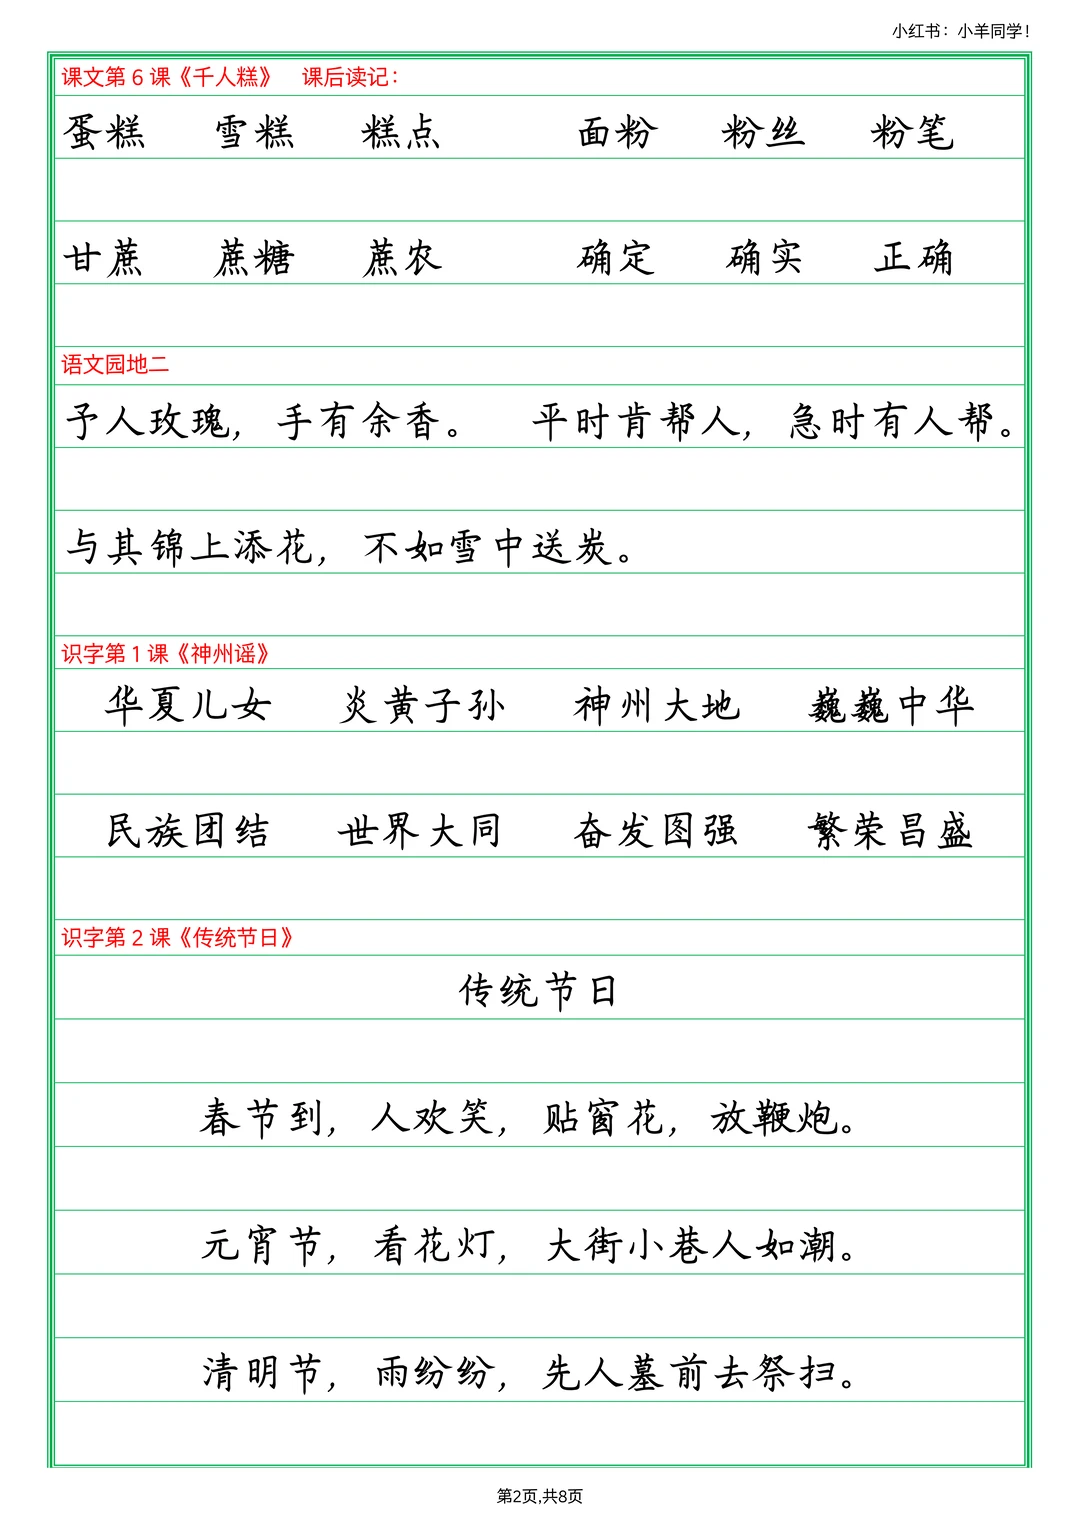 小红书：小羊同学！
课文第 6 课《千人糕》 课后读记：
蛋糕 雪糕 糕点 面粉 粉丝 粉笔
甘蔗 蔗糖 蔗农 确定 确实 正确
语文园地二
予人玫瑰，手有余香。 平时肯帮人，急时有人帮。
与其锦上添花，不如雪中送炭。
识字第 1 课《神州谣》
华夏儿女 炎黄子孙 神州大地 巍巍中华
民族团结 世界大同 奋发图强 繁荣昌盛
识字第 2 课《传统节日》
传统节日
春节到，人欢笑，贴窗花，放鞭炮。
元宵节，看花灯，大街小巷人如潮。
清明节，雨纷纷，先人墓前去祭扫。
第2页,共8页